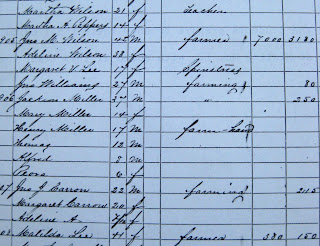 Martha Wilson 21 f Teacher
Martha A. Peppers 14 f
905 Jno. M. Wilson 45 M farmer 7000 3180
Adeline Wilson 38 f
Margaret V. Lee 17 f Spinstress
Jno Williams 27 M farming 80
906 Jackson Miller 37 M " 250
Mary Miller 14 f
Henry Miller 17 M farm-
Thomas 12 M
Alfred 8 M
6 f
07 Jno J Carron 22 M farming 215
Margaret Carron 20 f
Adeline A. f
08 Matilda Lee 41 f farmer 380 150